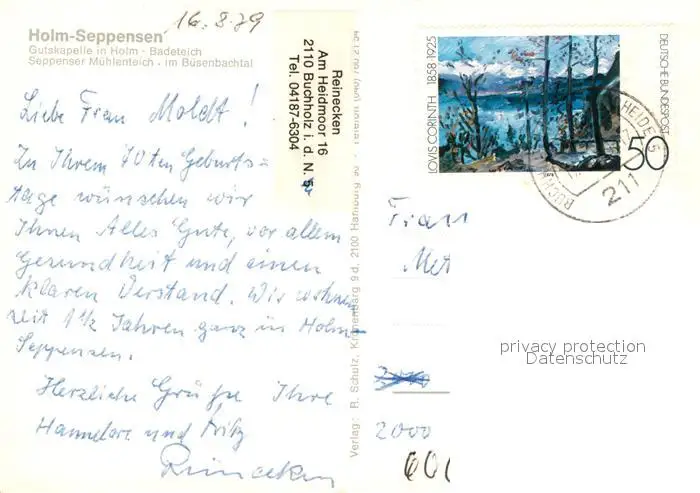 16.8.79
Holm-Seppensen
Gutskapelle in Holm · Badeteich
Seppenser Mühlenteich · im Büsenbachtal
Liebe Frau Moldt!
Zu Ihrem 70ten Geburts-
tage wünschen wir
Ihnen Alles Gute, vor allem
Gesundheit und einen
klaren Verstand. Wir wohnen
seit 1½ Jahren ganz in Holm-
Seppensen.
Herzliche Grüße Ihre
Hannelore und Fritz
Reinecken
Reinecken
Am Heidmoor 16
2110 Buchholz i. d. N. 5
Tel. 04187-6304
Verlag: R. Schulz, 9 d, 2100 Hamburg 90
LOVIS CORINTH 1858-1925
DEUTSCHE BUNDESPOST
50
HEIDE 5
211
BUCH
Frau
Met
2000
2000
60
privacy protection
Datenschutz